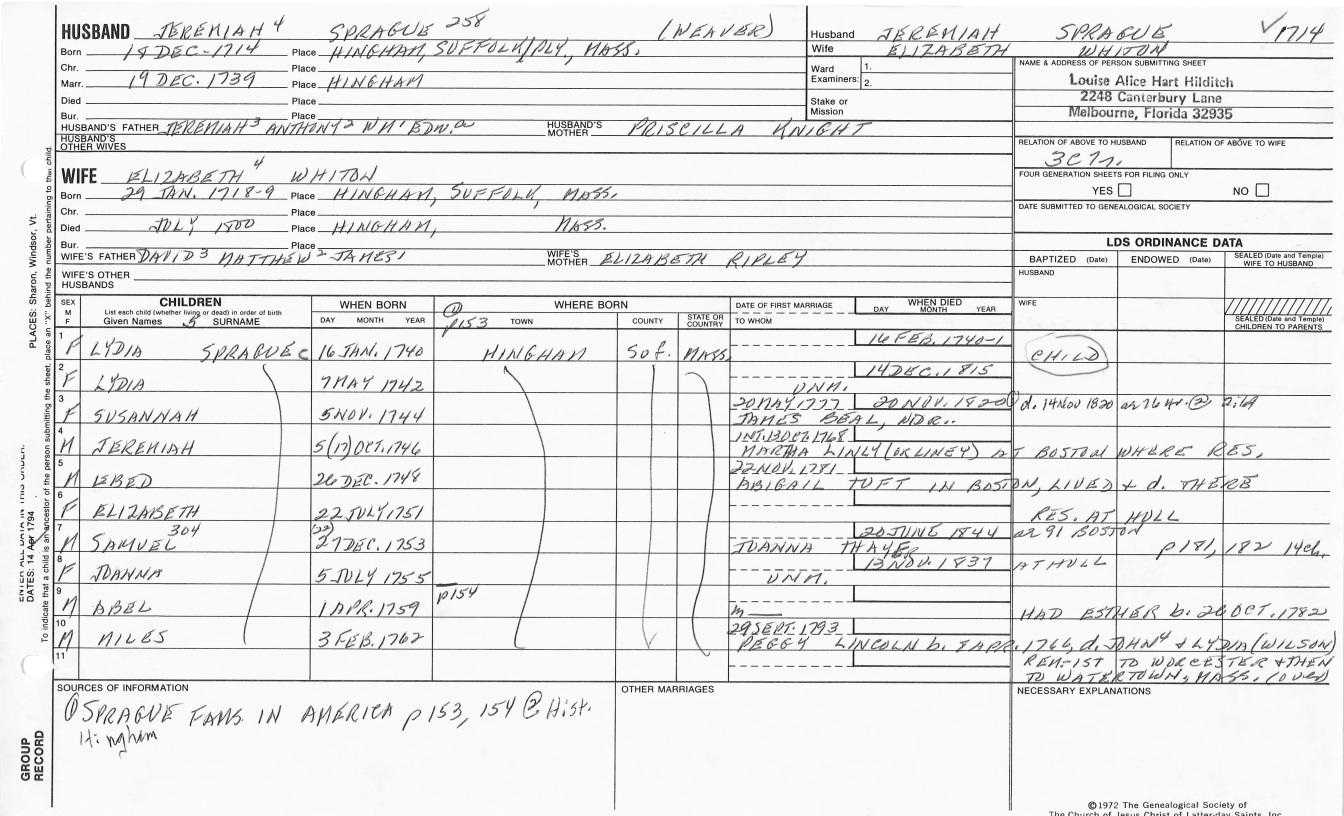 HUSBAND JEREMIAH 4 SPRAGUE 258 (WEAVER)
Born 18 DEC-1714 Place HINGHAM, SUFFOLK/PLY, MASS.
Chr. Place
Marr. 19 DEC. 1739 Place HINGHAM
Died Place
Bur. Place
HUSBAND'S FATHER JEREMIAH 3 ANTHONY 2 WM 1 EDW. a HUSBAND'S MOTHER PRISCILLA KNIGHT
HUSBAND'S OTHER WIVES
Husband JEREMIAH SPRAGUE ✓1714
Wife ELIZABETH WHITON
Ward Examiners: 1.
2.
Stake or Mission
NAME & ADDRESS OF PERSON SUBMITTING SHEET
Louise Alice Hart Hilditch
2248 Canterbury Lane
Melbourne, Florida 32935
RELATION OF ABOVE TO HUSBAND RELATION OF ABOVE TO WIFE
3C7r.
FOUR GENERATION SHEETS FOR FILING ONLY
YES NO
DATE SUBMITTED TO GENEALOGICAL SOCIETY
WIFE ELIZABETH 4 WHITON
Born 29 JAN. 1718-9 Place HINGHAM, SUFFOLK, MASS.
Chr. Place
Died JULY 1800 Place HINGHAM, MASS.
Bur. Place
WIFE'S FATHER DAVID 3 MATTHEW 2 JAMES 1 WIFE'S MOTHER ELIZABETH RIPLEY
WIFE'S OTHER HUSBANDS
LDS ORDINANCE DATA
BAPTIZED (Date) ENDOWED (Date) SEALED (Date and Temple) WIFE TO HUSBAND
HUSBAND
WIFE
SEALED (Date and Temple) CHILDREN TO PARENTS
SEX M F CHILDREN WHEN BORN WHERE BORN DATE OF FIRST MARRIAGE WHEN DIED
List each child (whether living or dead) in order of birth
Given Names 5 SURNAME DAY MONTH YEAR ① p153 TOWN COUNTY STATE OR COUNTRY TO WHOM DAY MONTH YEAR
1 F LYDIA SPRAGUE 16 JAN. 1740 HINGHAM Sof. MASS. 16 FEB. 1740-1 CHILD
2 F LYDIA 7 MAY 1742 UNM. 14 DEC. 1815
3 F SUSANNAH 5 NOV. 1744 20 MAY 1777 20 NOV. 1820 ① d. 14 NOV 1820 ②
JAMES BEAL, NDR..
4 M JEREMIAH 5(17) OCT. 1746 INT. 13 OCT. 1768
MARTHA LINLY (OR LINEY) AT BOSTON WHERE RES.
5 M EBED 26 DEC. 1748 22 NOV. 1781
ABIGAIL TUFT IN BOSTON, LIVED & d. THERE
6 F ELIZABETH 22 JULY 1751 RES. AT HULL
7 M SAMUEL 304 (22) 27 DEC. 1753 20 JUNE 1844 ae 91 BOSTON
JOANNA THAYER p181, 182 14ch.
8 F JOANNA 5 JULY 1755 UNM. 13 NOV. 1837 AT HULL
p154
9 M ABEL 1 APR. 1759 m HAD ESTHER b. 26 OCT. 1782
10 M MILES 3 FEB. 1762 29 SEPT. 1793
PEGGY LINCOLN b. 8 APR. 1766, d. JOHN 4 & LYDIA (WILSON)
11 REM-1ST TO WORCESTER & THEN
TO WATERTOWN, MASS. (OVER)
SOURCES OF INFORMATION OTHER MARRIAGES NECESSARY EXPLANATIONS
① SPRAGUE FAMS IN AMERICA p 153, 154 ② Hist.
Hingham
GROUP RECORD
ENTER ALL DATA IN THIS ORDER:
DATES: 14 Apr 1794
PLACES: Sharon, Windsor, Vt.
To indicate that a child is an ancestor of the person submitting the sheet, place an "X" behind the number pertaining to that child.
©1972 The Genealogical Society of
The Church of Jesus Christ of Latter-day Saints, Inc.